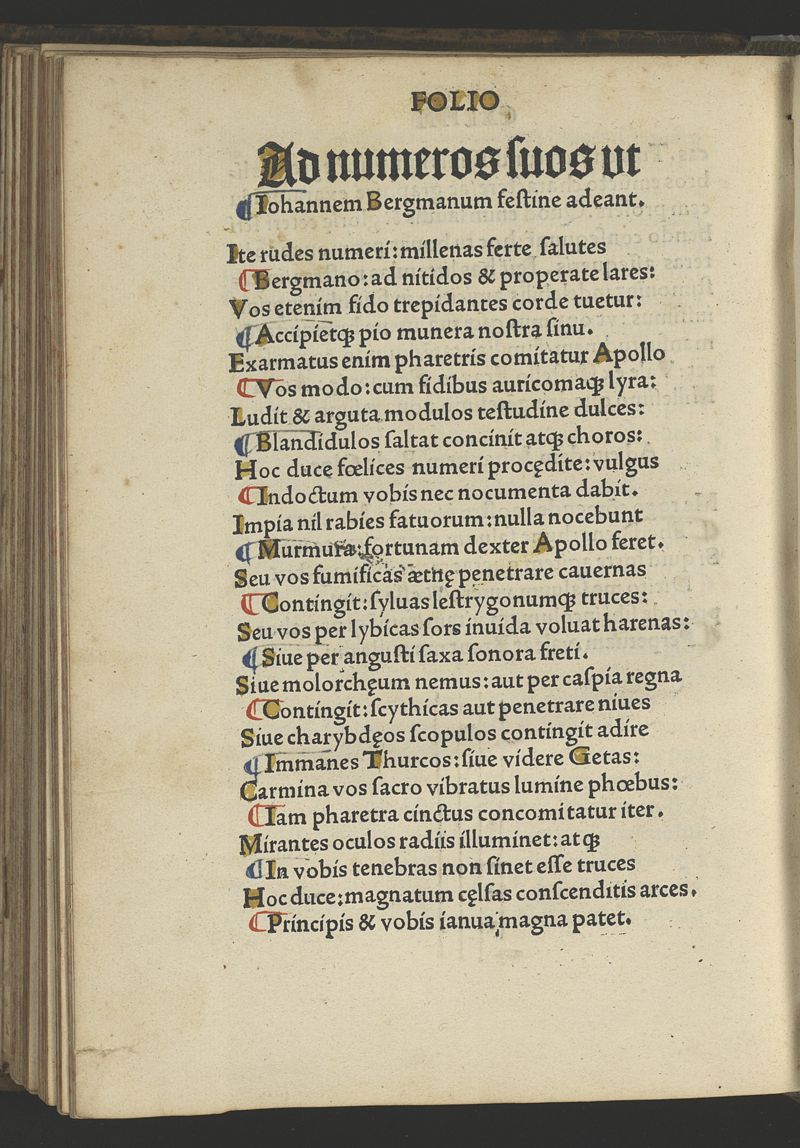 FOLIO
Ad numeros ſuos ut
¶Iohannem Bergmanum feſtine adeant.
Ite rudes numeri: millenas ferte ſalutes
¶Bergmano: ad nitidos & properate lares:
Vos etenim fido trepidantes corde tuetur:
¶Accipietqꝫ pio munera noſtra ſinu.
Exarmatus enim pharetris comitatur Apollo
¶Vos modo: cum fidibus auricomaqꝫ lyra:
Ludit & arguta modulos teſtudine dulces:
¶Blandidulos ſaltat concinit atqꝫ choros:
Hoc duce fœlices numeri procędite: vulgus
¶Indoctum vobis nec nocumenta dabit.
Impia nil rabies fatuorum: nulla nocebunt
¶Murmura: fortunam dexter Apollo feret.
Seu vos fumificas ætnę penetrare cauernas
¶Contingit: ſyluas leſtrygonumqꝫ truces:
Seu vos per lybicas ſors inuida voluat harenas:
¶Siue per anguſti ſaxa ſonora freti.
Siue molorchęum nemus: aut per caſpia regna
¶Contingit: ſcythicas aut penetrare niues
Siue charybdęos ſcopulos contingit adire
¶Immanes Thurcos: ſiue videre Getas:
Carmina vos ſacro vibratus lumine phœbus:
¶Iam pharetra cinctus concomitatur iter.
Mirantes oculos radiis illuminet: atqꝫ
¶In vobis tenebras non ſinet eſſe truces
Hoc duce: magnatum cęlſas conſcenditis arces.
¶Principis & vobis ianua magna patet.